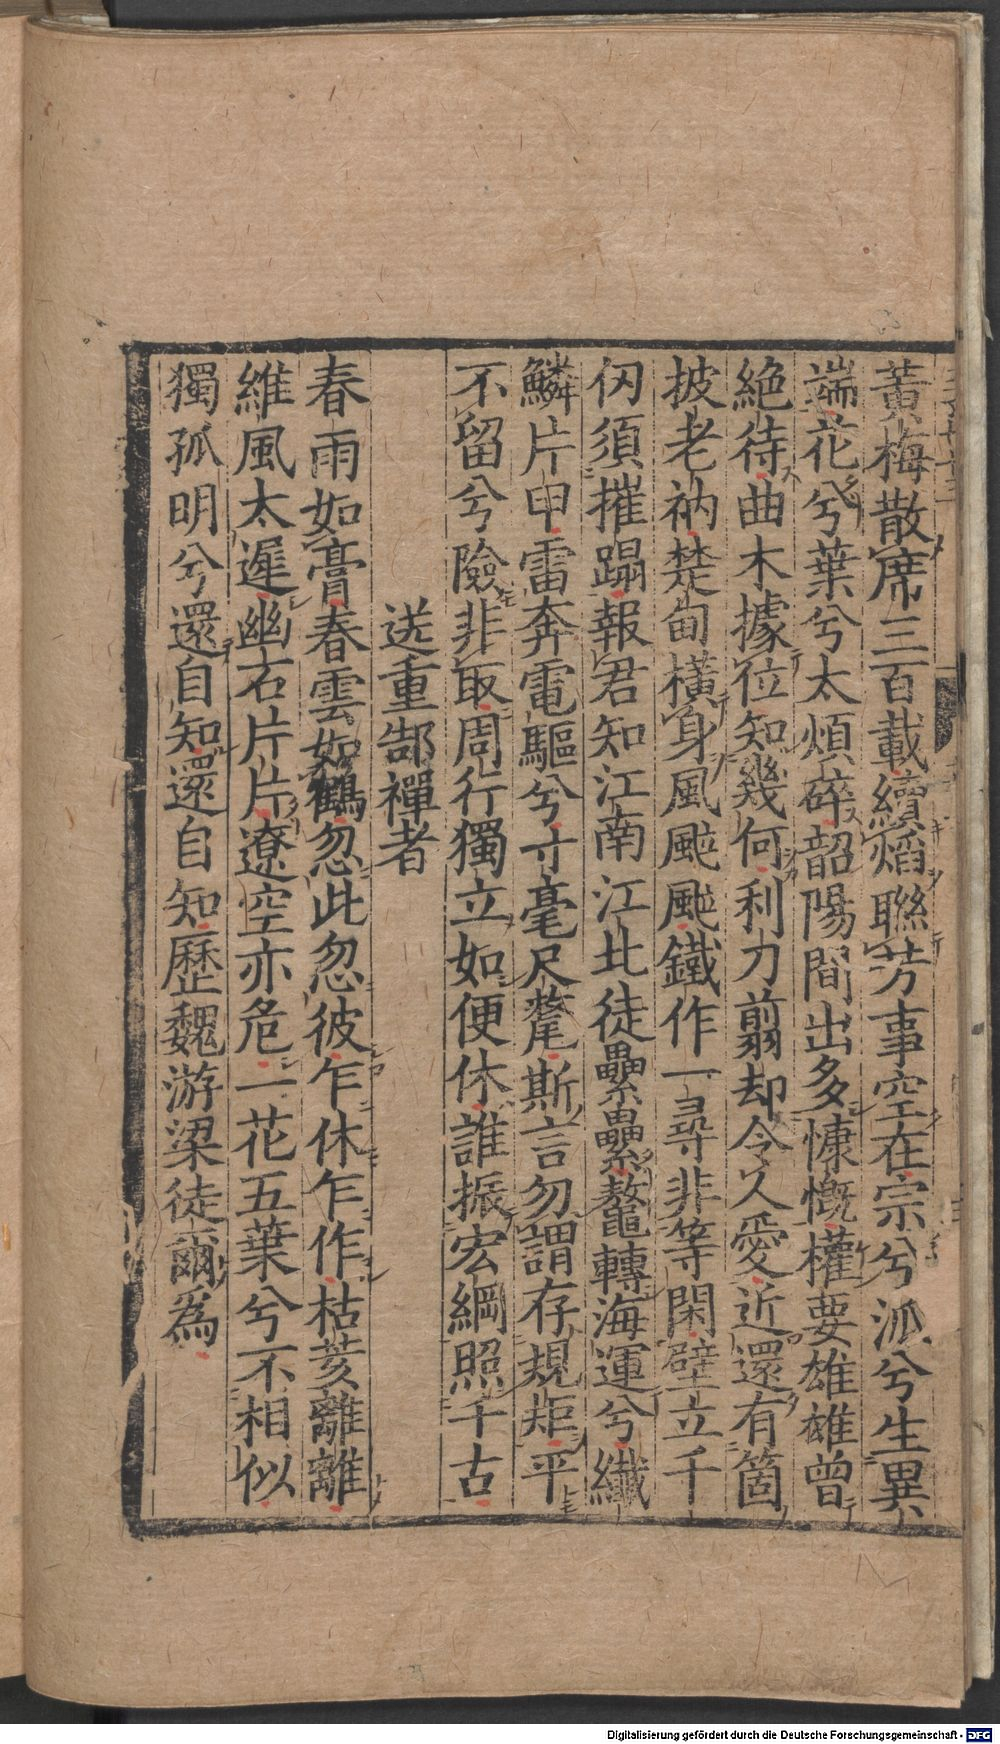 黃梅散席三百載續焰聯芳事空在宗兮派兮生異
端花兮葉兮太煩碎韶陽間出多慷慨權要雄雄曾
絶待曲木據位知幾何利刀翦却令人愛近還有箇
披老衲楚甸橫身風颸颸鐵作一尋非等閑壁立千
仞須摧蹋報君知江南江北徒纍纍鼇轉海運兮纖
鱗片甲雷奔電驅兮寸毫尺氂斯言勿謂存規矩平
不留兮險非取周行獨立如便休誰振宏綱照千古
送重郜禪者
春雨如膏春雲如鶴忽此忽彼乍休乍作枯荄離離
維風太遲幽石片片遼空亦危一花五葉兮不相似
獨孤明兮還自知還自知歷魏游梁徒爾為
Digitalisierung gefördert durch die Deutsche Forschungsgemeinschaft - DFG